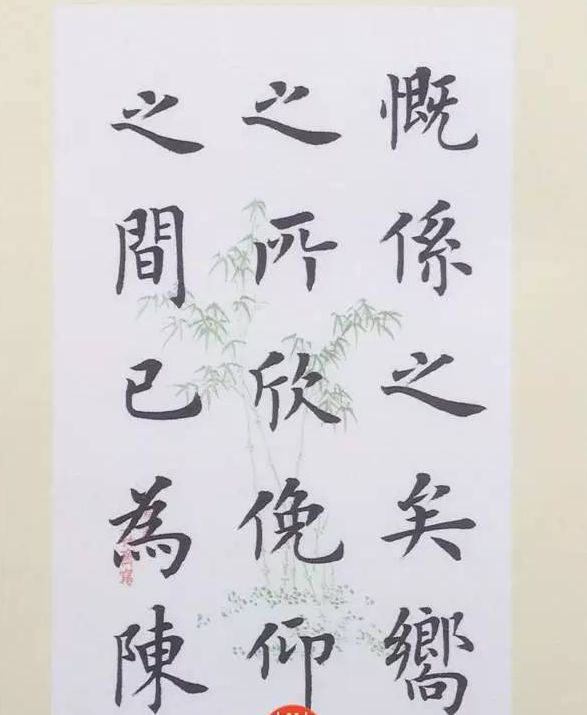 慨係之矣嚮
之所欣俛仰
之間已為陳